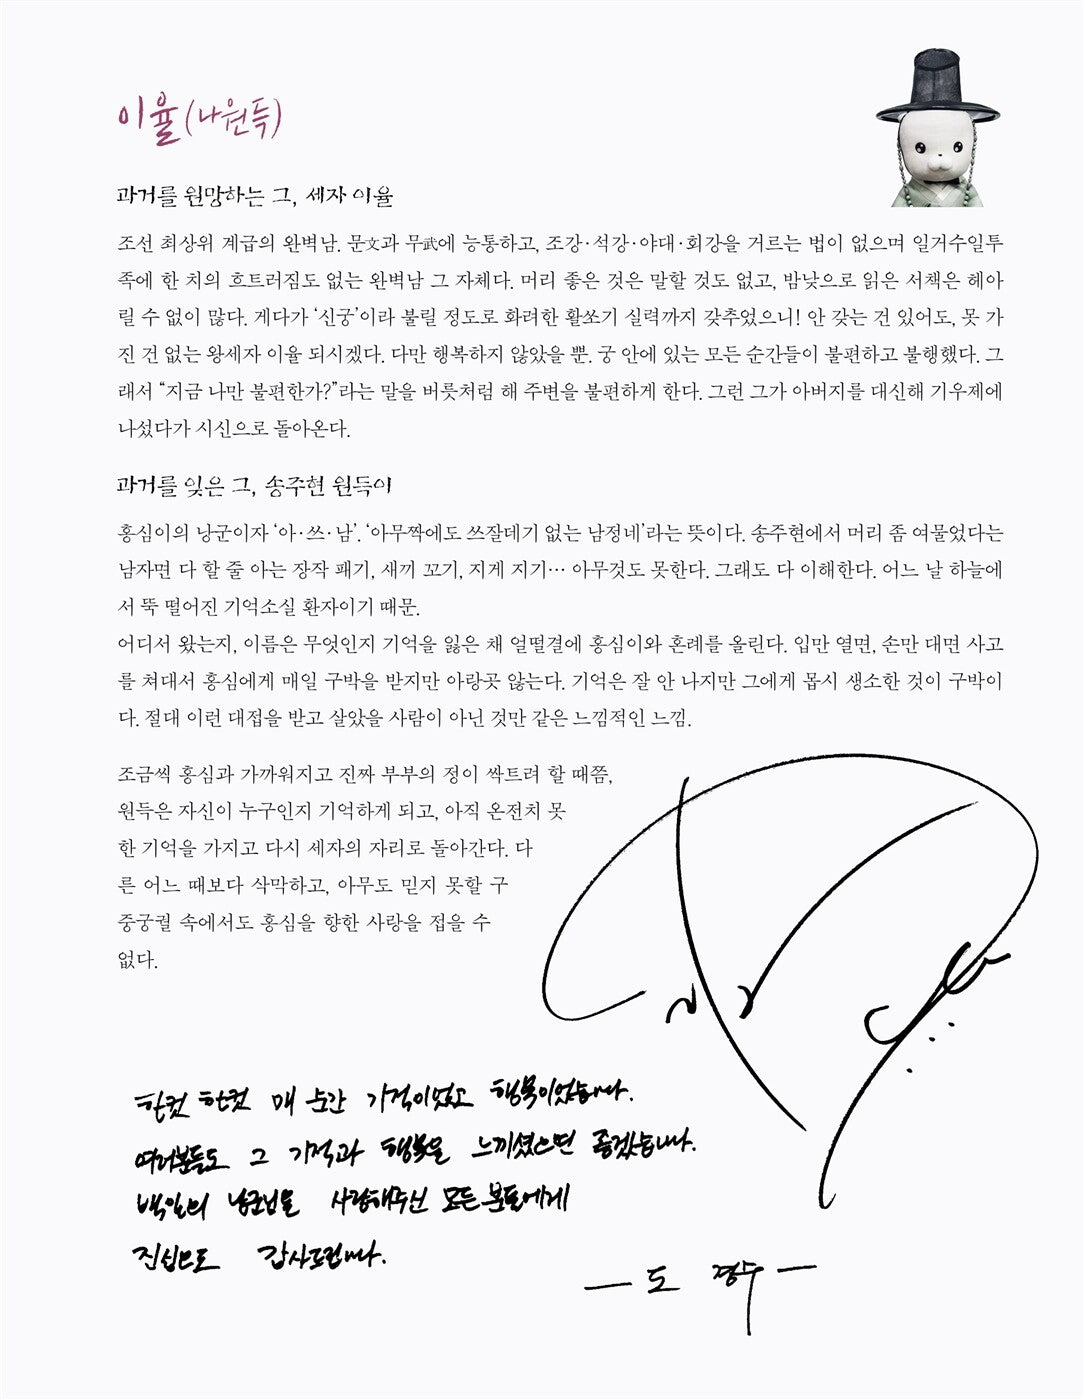 이율(나원득)
과거를 원망하는 그, 세자 이율
조선 최상위 계급의 완벽남. 문文과 무武에 능통하고, 조강·석강·야대·회강을 거르는 법이 없으며 일거수일투
족에 한 치의 흐트러짐도 없는 완벽남 그 자체다. 머리 좋은 것은 말할 것도 없고, 밤낮으로 읽은 서책은 헤아
릴 수 없이 많다. 게다가 ‘신궁’이라 불릴 정도로 화려한 활쏘기 실력까지 갖추었으니! 안 갖는 건 있어도, 못 가
진 건 없는 왕세자 이율 되시겠다. 다만 행복하지 않았을 뿐. 궁 안에 있는 모든 순간들이 불편하고 불행했다. 그
래서 “지금 나만 불편한가?”라는 말을 버릇처럼 해 주변을 불편하게 한다. 그런 그가 아버지를 대신해 기우제에
나섰다가 시신으로 돌아온다.
과거를 잊은 그, 송주현 원득이
홍심이의 낭군이자 ‘아·쓰·남’. ‘아무짝에도 쓰잘데기 없는 남정네’라는 뜻이다. 송주현에서 머리 좀 여물었다는
남자면 다 할 줄 아는 장작 패기, 새끼 꼬기, 지게 지기… 아무것도 못한다. 그래도 다 이해한다. 어느 날 하늘에
서 뚝 떨어진 기억소실 환자이기 때문.
어디서 왔는지, 이름은 무엇인지 기억을 잃은 채 얼떨결에 홍심이와 혼례를 올린다. 입만 열면, 손만 대면 사고
를 쳐대서 홍심에게 매일 구박을 받지만 아랑곳 않는다. 기억은 잘 안 나지만 그에게 몹시 생소한 것이 구박이
다. 절대 이런 대접을 받고 살았을 사람이 아닌 것만 같은 느낌적인 느낌.
조금씩 홍심과 가까워지고 진짜 부부의 정이 싹트려 할 때쯤,
원득은 자신이 누구인지 기억하게 되고, 아직 온전치 못
한 기억을 가지고 다시 세자의 자리로 돌아간다. 다
른 어느 때보다 삭막하고, 아무도 믿지 못할 구
중궁궐 속에서도 홍심을 향한 사랑을 접을 수
없다.
한컷 한컷 매 순간 기적이었고 행복이었습니다.
여러분들도 그 기적과 행복을 느끼셨으면 좋겠습니다.
백일의 낭군님을 사랑해주신 모든 분들에게
진심으로 감사드립니다.
— 도 경수 —